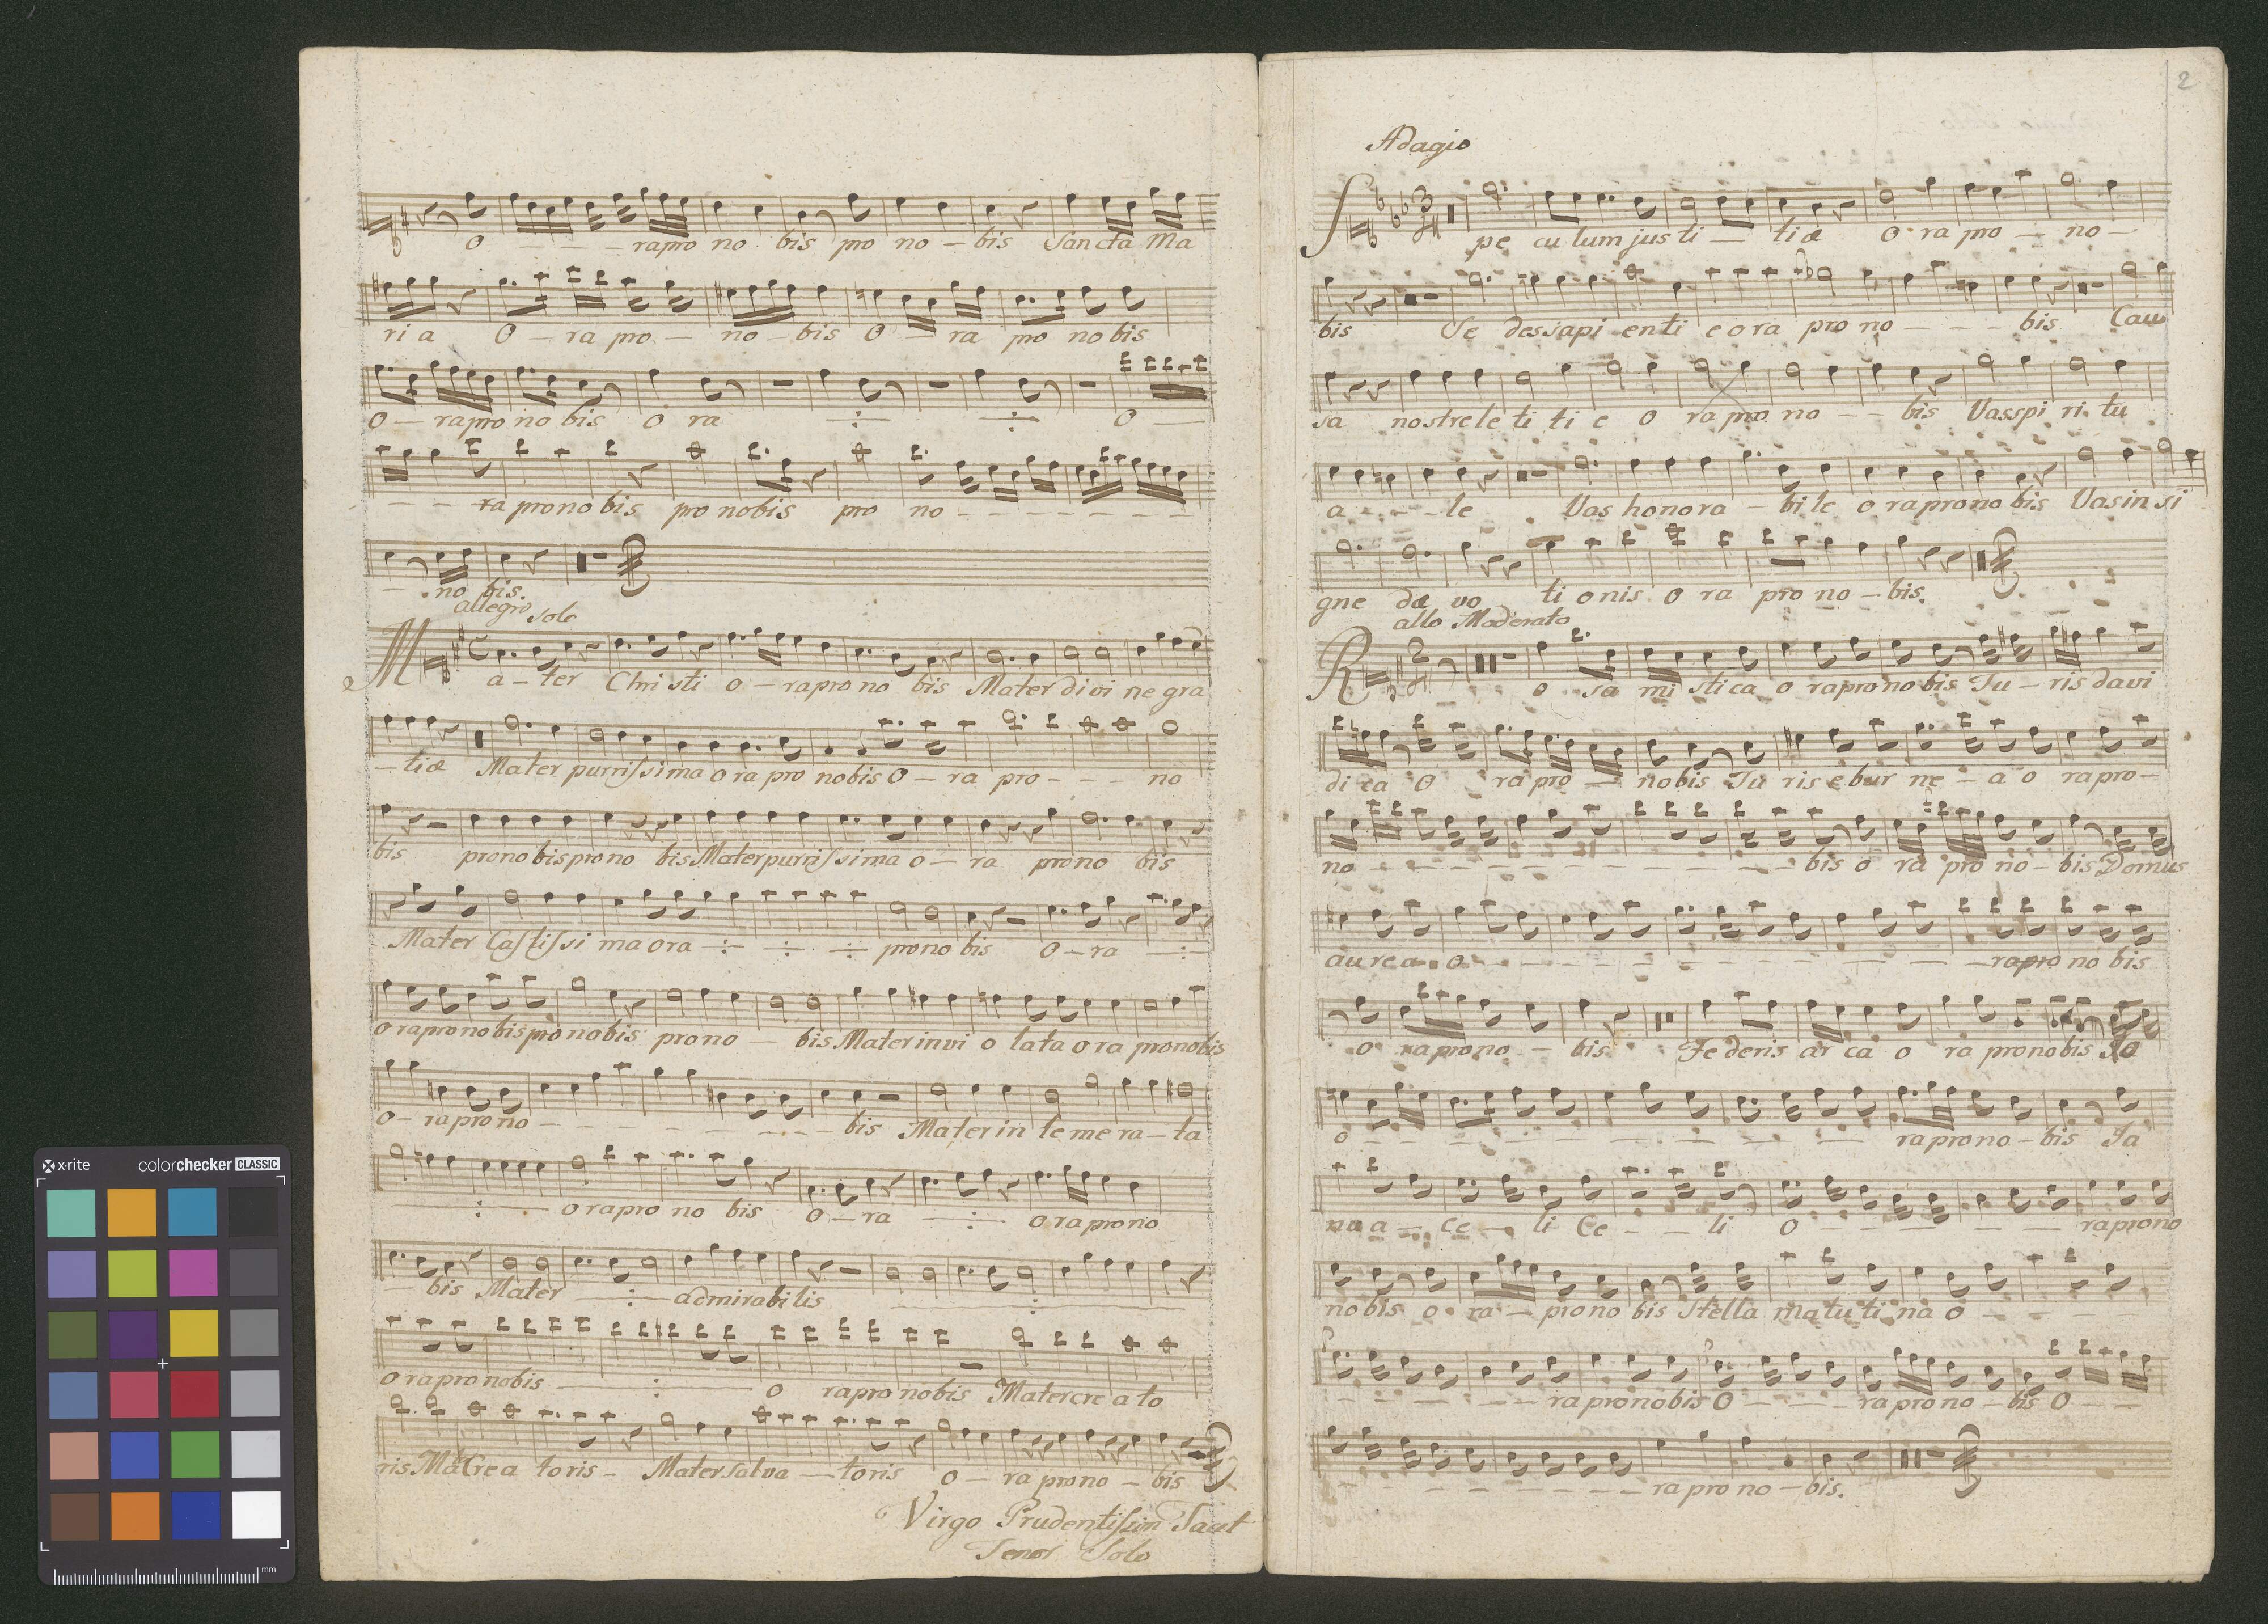 O - - - - rapro no bis pro no - bis Sancta Ma
ri a O - ra pro - no - bis O - ra pro no bis
O - rapro no bis O ra O
- - ra pro no bis pro nobis pro no - - - - - - -
- no bis.
allegro solo
Mater Christi o - rapro no bis Mater divi ne gra
- tiæ Mater purrissima o ra pro nobis O - ra pro - - - no
bis prono bis prono bis Mater purrissima o - ra prono bis
Mater Castissi ma o ra prono bis O - ra
o rapro nobis pro nobis prono - bis Mater invi o lata o ra pronobis
o - ra pro no - - - - - - - - - bis Mater in te me ra - ta
o rapro no bis o - ra o rapro no
bis Mater admirabilis
o rapro nobis o rapro nobis Mater cre a to
ris Ma Crea toris - Mater salva - toris o - ra prono - bis
Virgo Prudentissim Tacet
Tenor Solo
2
Adagio
Spe cu lum jus ti - tiæ O ra pro - no -
bis Se des sapi enti e o ra pro no - - - bis Cau
sa nostre le ti ti e o ra pro no - - bis Vas spi ri tu
a - - - le Vas honora - bi le o ra prono bis Vas in si
gne dæ vo ti onis o ra pro no - bis.
allo Moderato
Ro sa mi stica o rapro no bis Tu - ris davi
di ca O ra pro - nobis Tu ris e bur ne - a o rapro -
no - - - - - - - - - - - bis o ra pro no - bis Domus
au re a o - - - - - - - - - - rapro no bis
o rapro no - bis Federis ar ca o ra pronobis
o - - - - - - - - - - - rapro no - bis Ja
nu a - ce - li Ce - - li o - - - - - - rapro no
no bis o ra - prono bis Stella matu ti na o - - -
- - - - - - rapro nobis O - - - ra pro no - bis O - -
- - - - - - - - - ra pro no - bis.